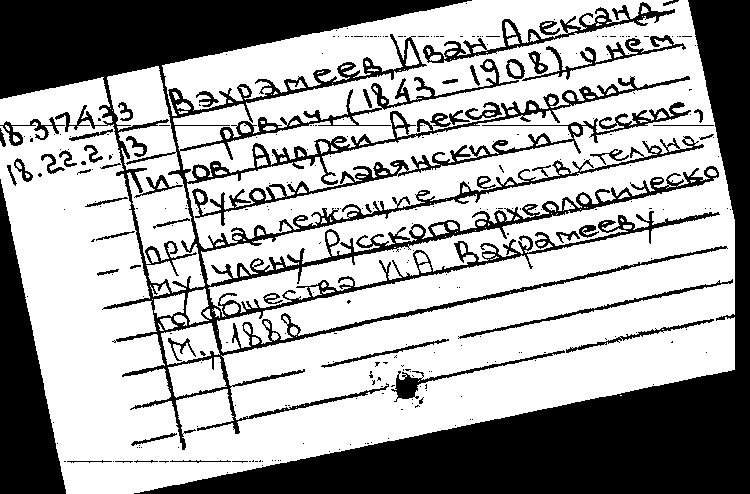 18.317.4.33 Вахрамеев, Иван Александ-
18.22.2.13 рович, (1843-1908), о нем
Титов, Андреи Александрович.
Рукопи славянские и русские,
принадлежащие действительно-
му члену Русского археологическо
го общества И.А. Вахрамееву.
М., 1888